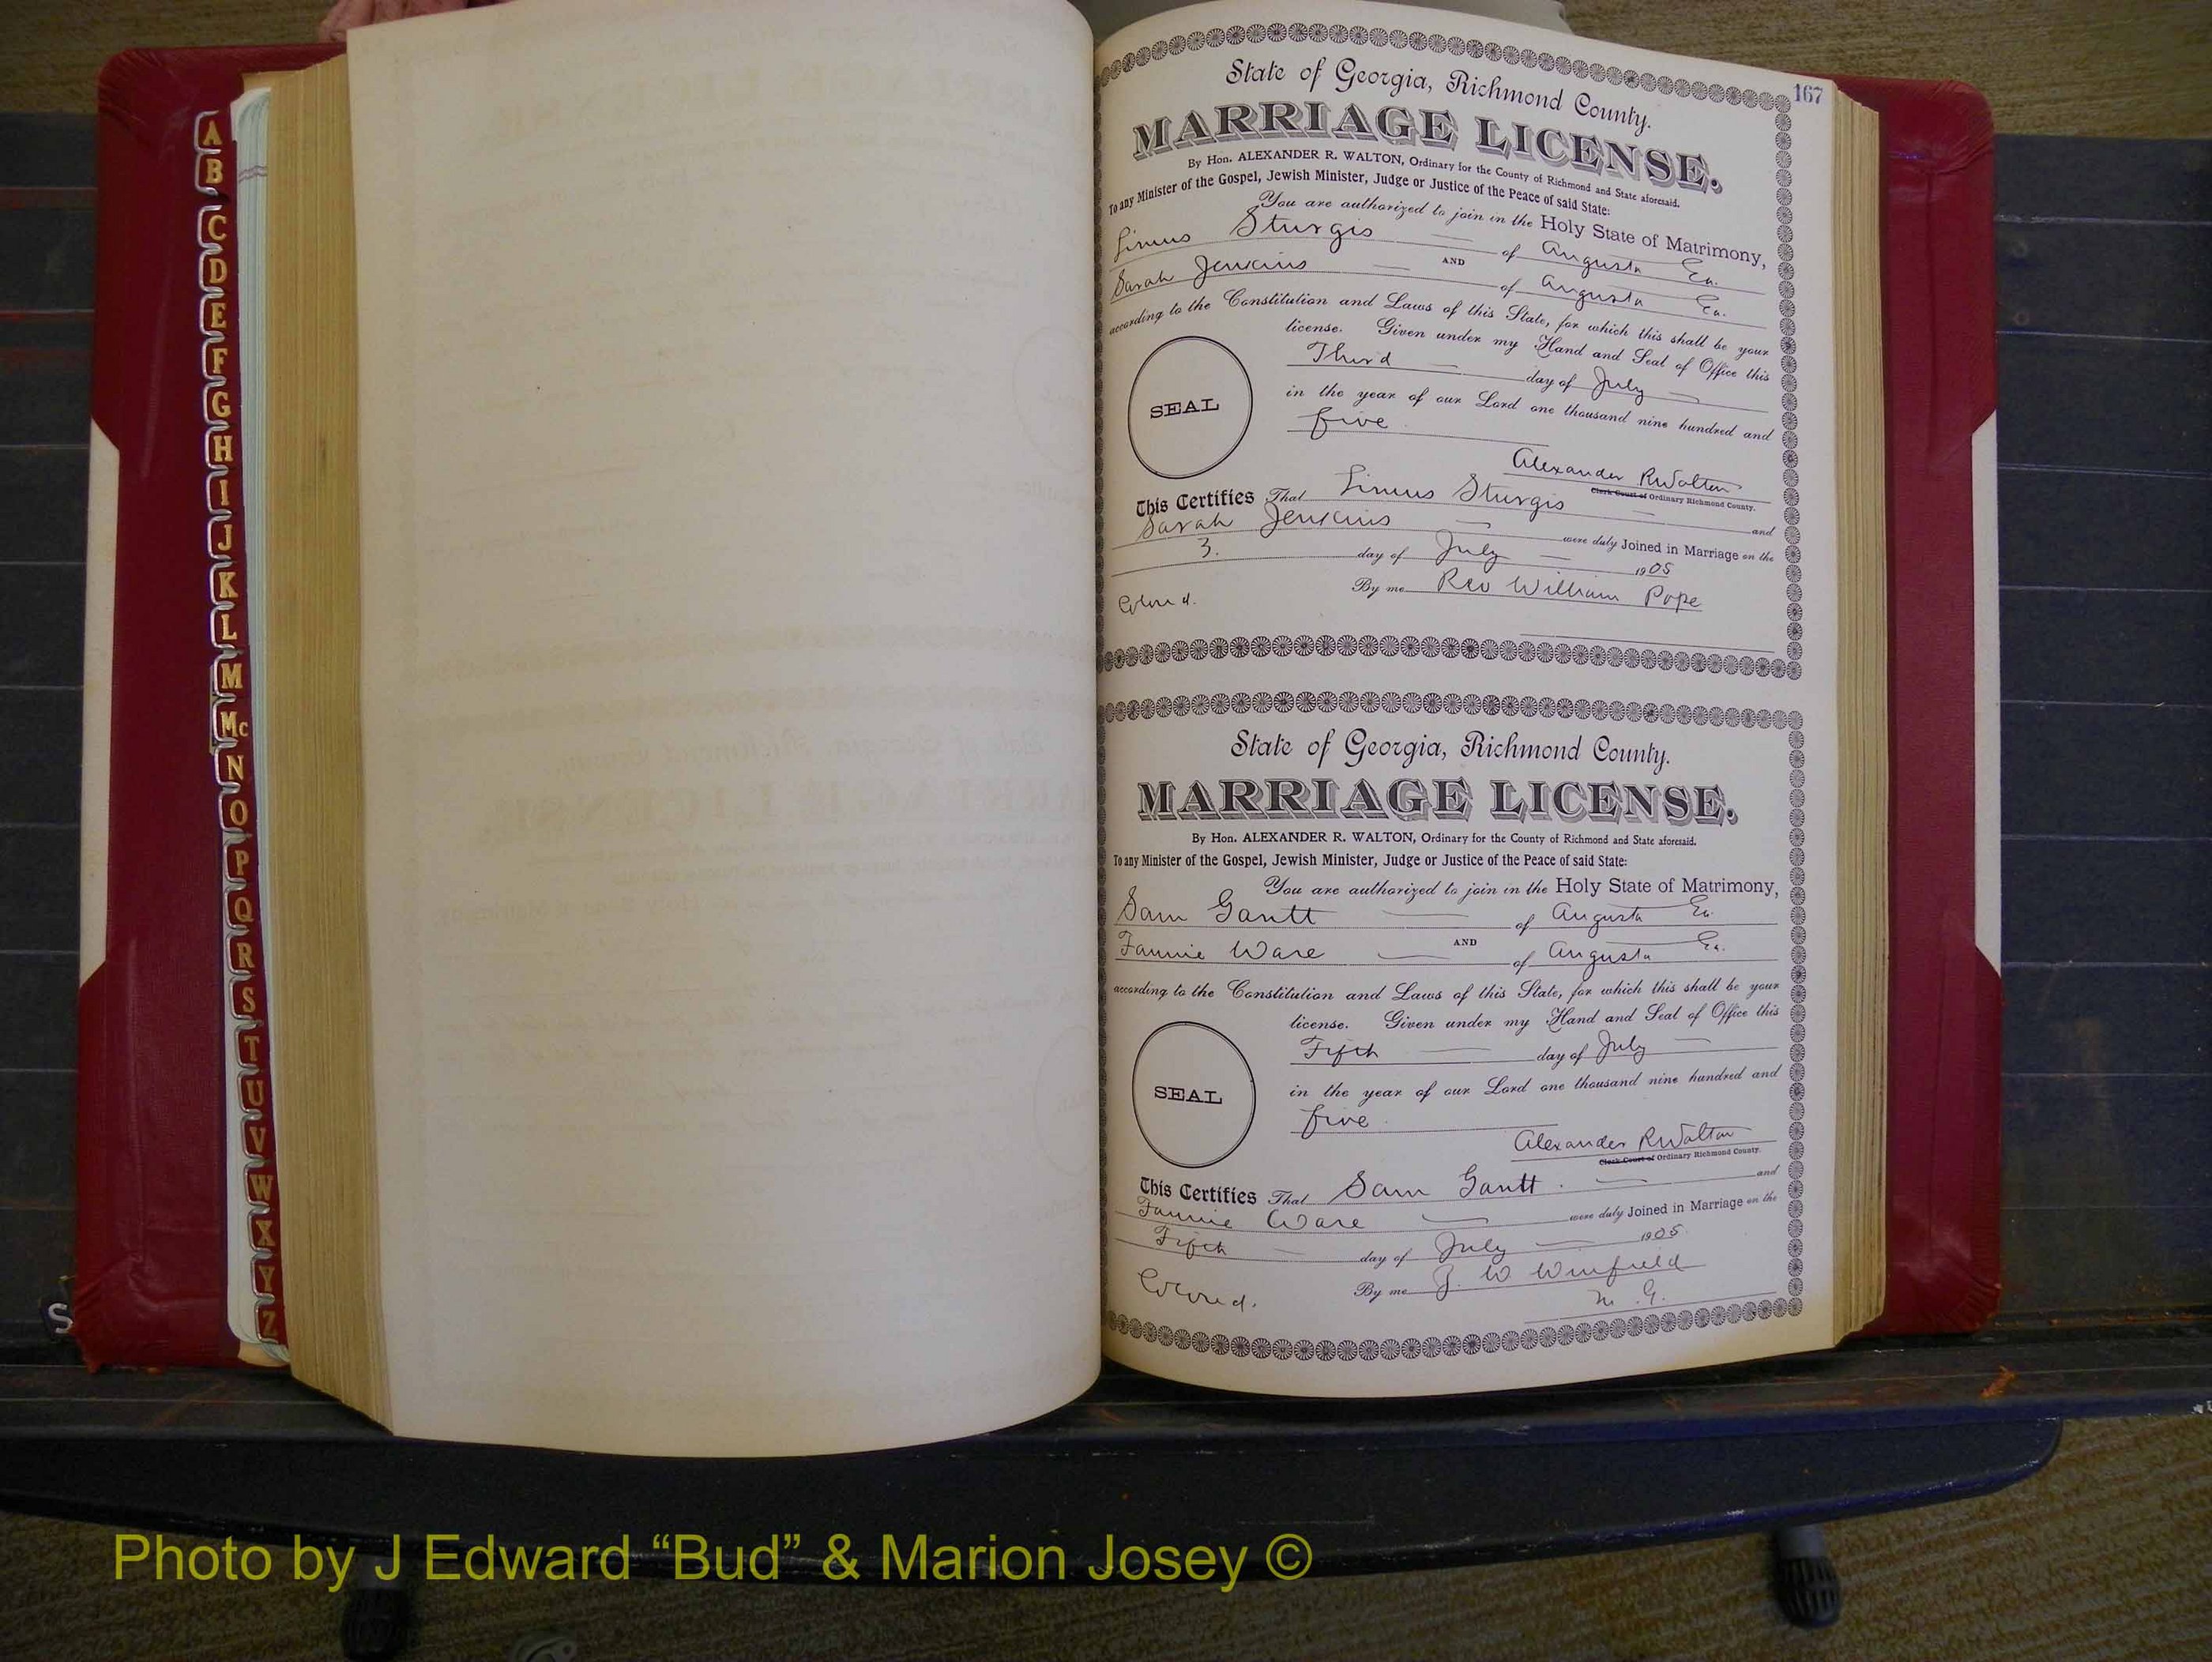 A
B
C
D
E
F
G
H
I
J
K
L
M
Mc
N
O
P
Q
R
S
T
U
V
W
X
Y
Z
167
State of Georgia, Richmond County.
MARRIAGE LICENSE.
By Hon. ALEXANDER R. WALTON, Ordinary for the County of Richmond and State aforesaid.
To any Minister of the Gospel, Jewish Minister, Judge or Justice of the Peace of said State:
You are authorized to join in the Holy State of Matrimony,
Sturgis of Augusta Ga.
AND
Sarah Jenkins of Augusta Ga.
according to the Constitution and Laws of this State, for which this shall be your
license. Given under my Hand and Seal of Office this
Third day of July
in the year of our Lord one thousand nine hundred and
SEAL
five
Alexander R Walton
Clerk Court of Ordinary Richmond County.
This Certifies That Sturgis and
Sarah Jenkins were duly Joined in Marriage on the
3. day of July 1905
By me Rev William Pope
Colored.
State of Georgia, Richmond County.
MARRIAGE LICENSE.
By Hon. ALEXANDER R. WALTON, Ordinary for the County of Richmond and State aforesaid.
To any Minister of the Gospel, Jewish Minister, Judge or Justice of the Peace of said State:
You are authorized to join in the Holy State of Matrimony,
Sam Gantt of Augusta Ga.
AND
Fannie Ware of Augusta Ga.
according to the Constitution and Laws of this State, for which this shall be your
license. Given under my Hand and Seal of Office this
Fifth day of July
in the year of our Lord one thousand nine hundred and
SEAL
five
Alexander R Walton
Clerk Court of Ordinary Richmond County.
This Certifies That Sam Gantt and
Fannie Ware were duly Joined in Marriage on the
Fifth day of July 1905
By me J. W Winfield
M. G.
Colored.
Photo by J Edward “Bud” & Marion Josey ©